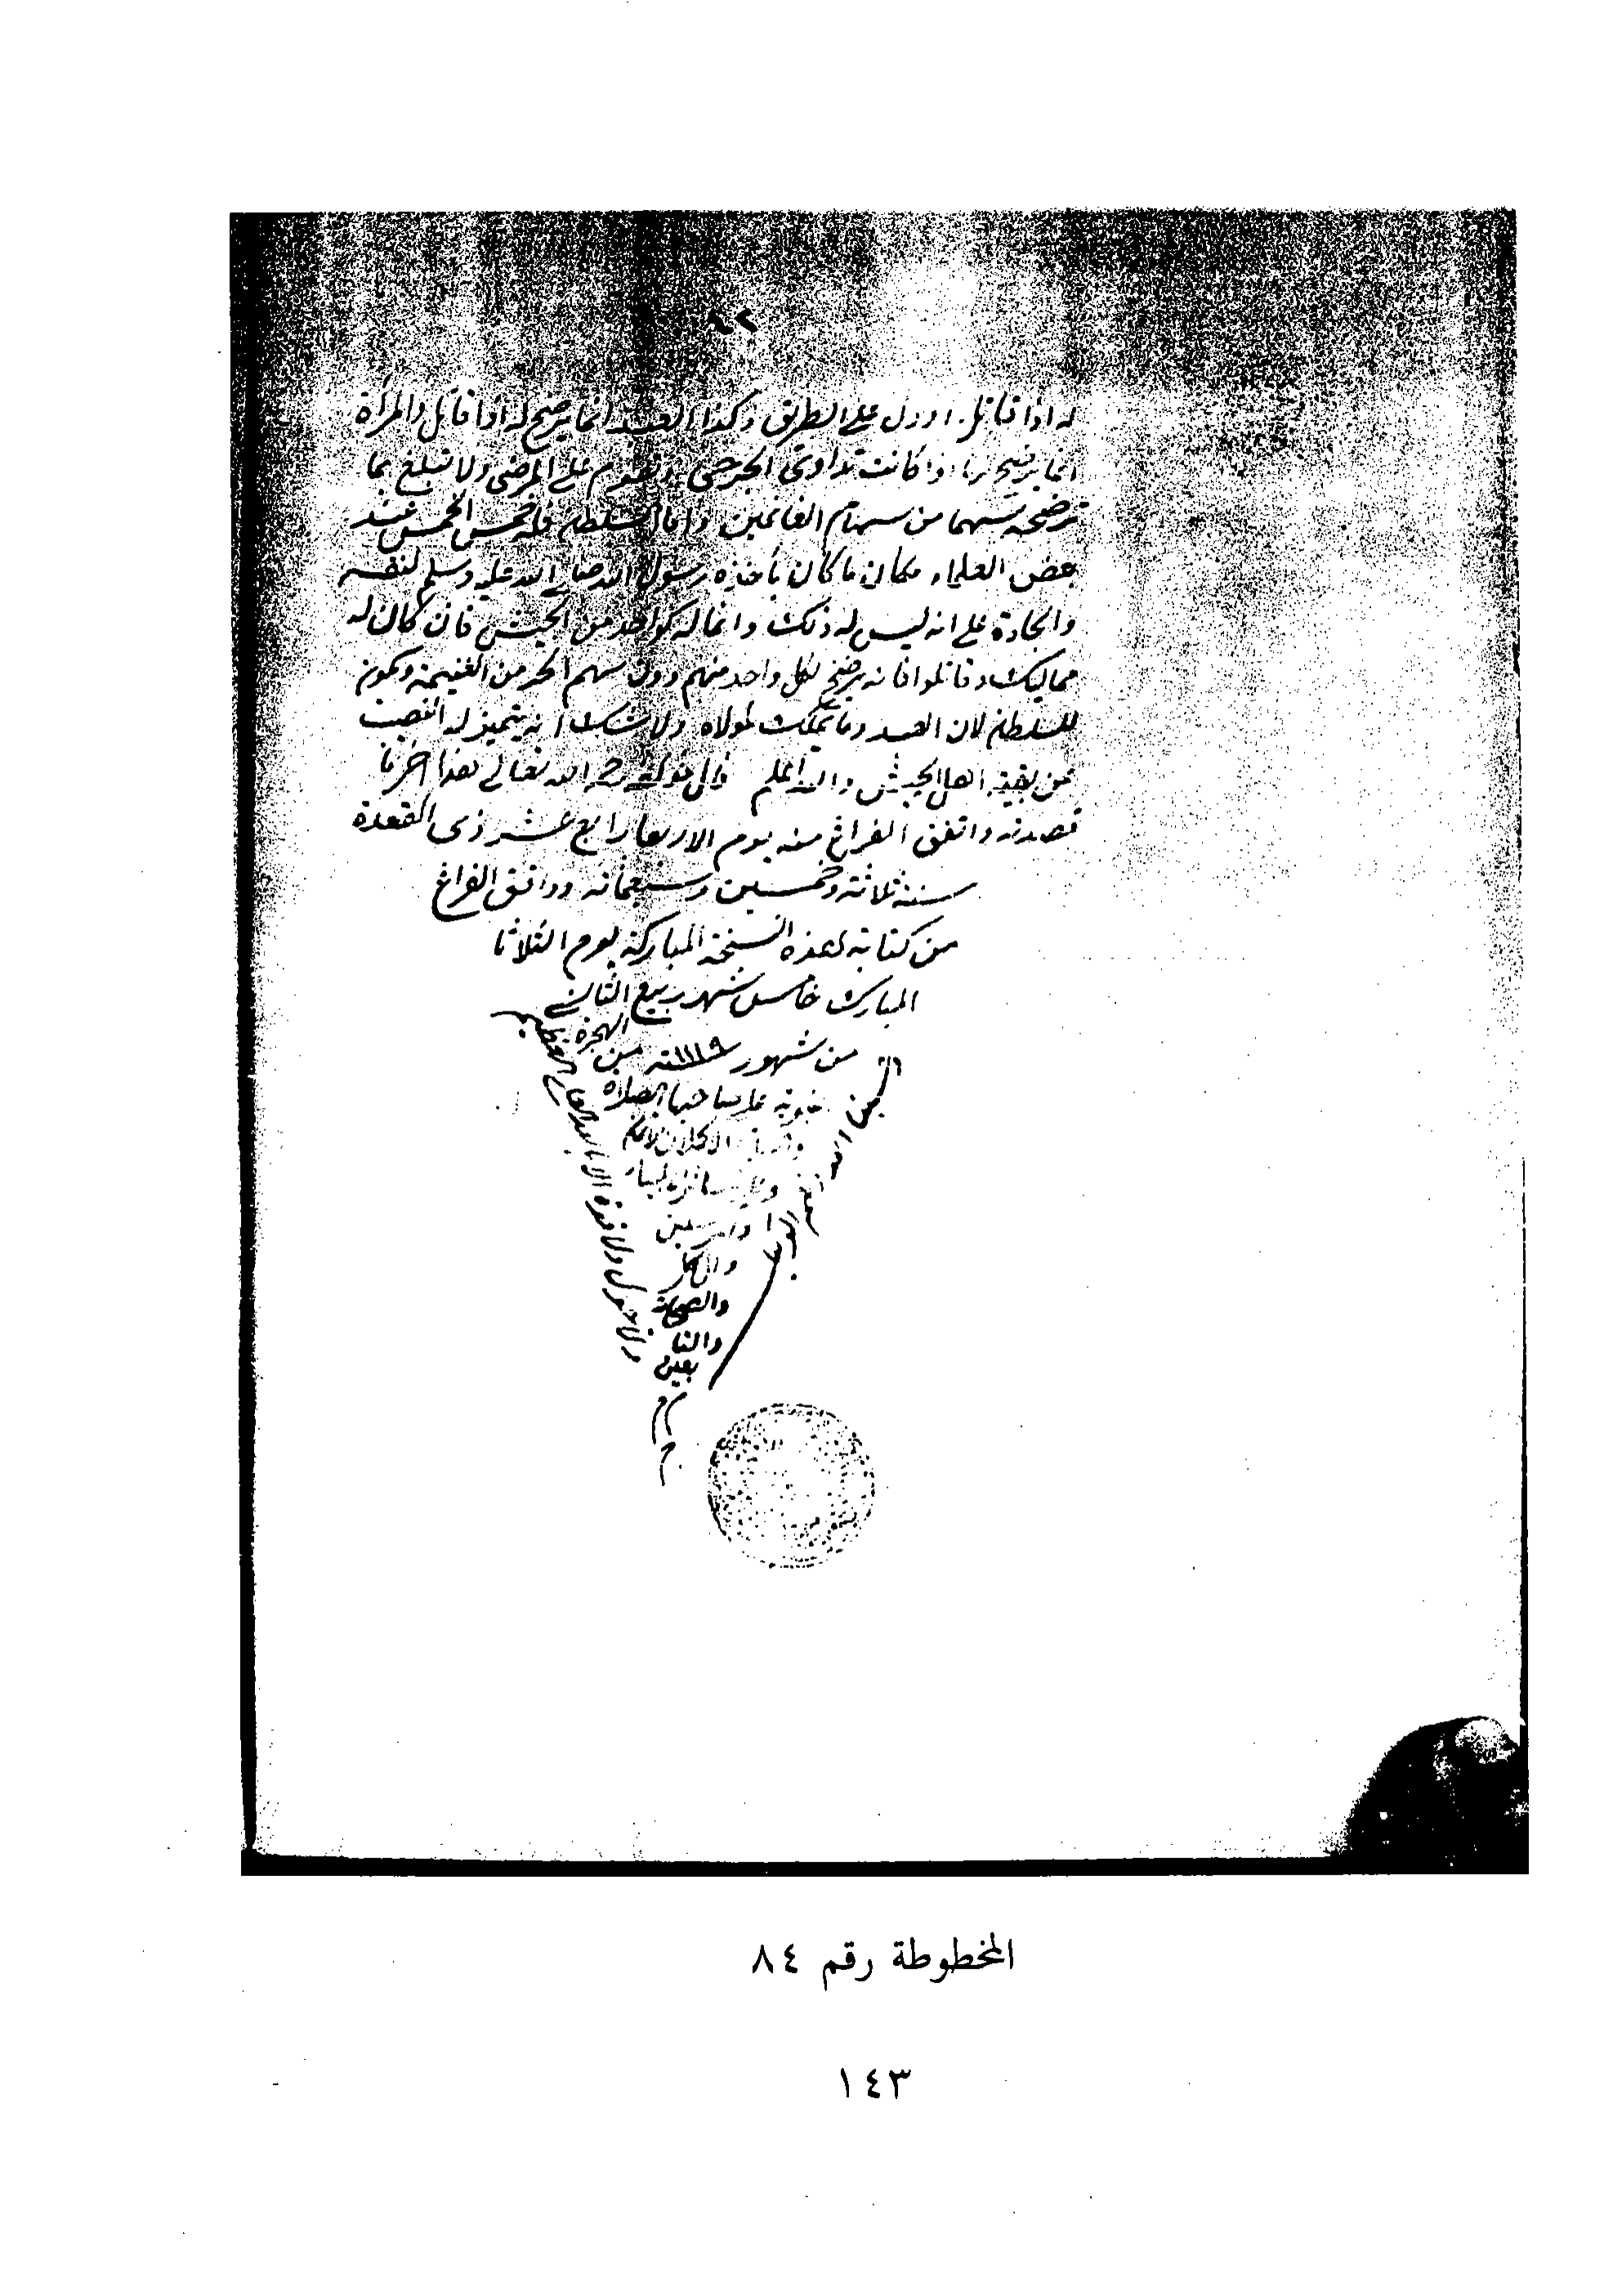 له اذا قاتل او دل على الطريق وكذا العبد انما يرضخ له اذا قاتل والمرأة
انما يرضخ لها اذا كانت تداوي الجرحى وتقوم على المرضى ولا تبلغ بما
ترضخه سهما من سهام الغانمين واما السلطان فله خمس الخمس عند
بعض العلماء مكان ما كان يأخذه رسول الله صلى الله عليه وسلم لنفسه
والجادة على انه ليس له ذلك وانما له كواحد من الجيش فان كان له
مماليك وقاتلوا فانه يرضخ لكل واحد منهم دون سهم الحر من الغنيمة ويكون
للسلطان لان العبد وما يملك لمولاه ولا شك انه يتميز له النصيب
عن بقية اهل الجيش والله اعلم قال مؤلفه رحمه الله تعالى هذا اخر ما
قصدته واتفق الفراغ منه يوم الاربعا رابع عشر ذي القعدة
سنة ثلاثة وخمسين وسبعمائه ووافق الفراغ
من كتابة هذه النسخة المباركة يوم الثلاثا
المبارك خامس شهر ربيع الثاني
من شهور سنة ١١١٩ من الهجرة
على صاحبها الصلاة
وعلى سائر
والمرسلين
والال
والصحابة
والتا
بعين
ولا حول ولا قوة الا بالله العلي العظيم
المخطوطة رقم ٨٤
١٤٣